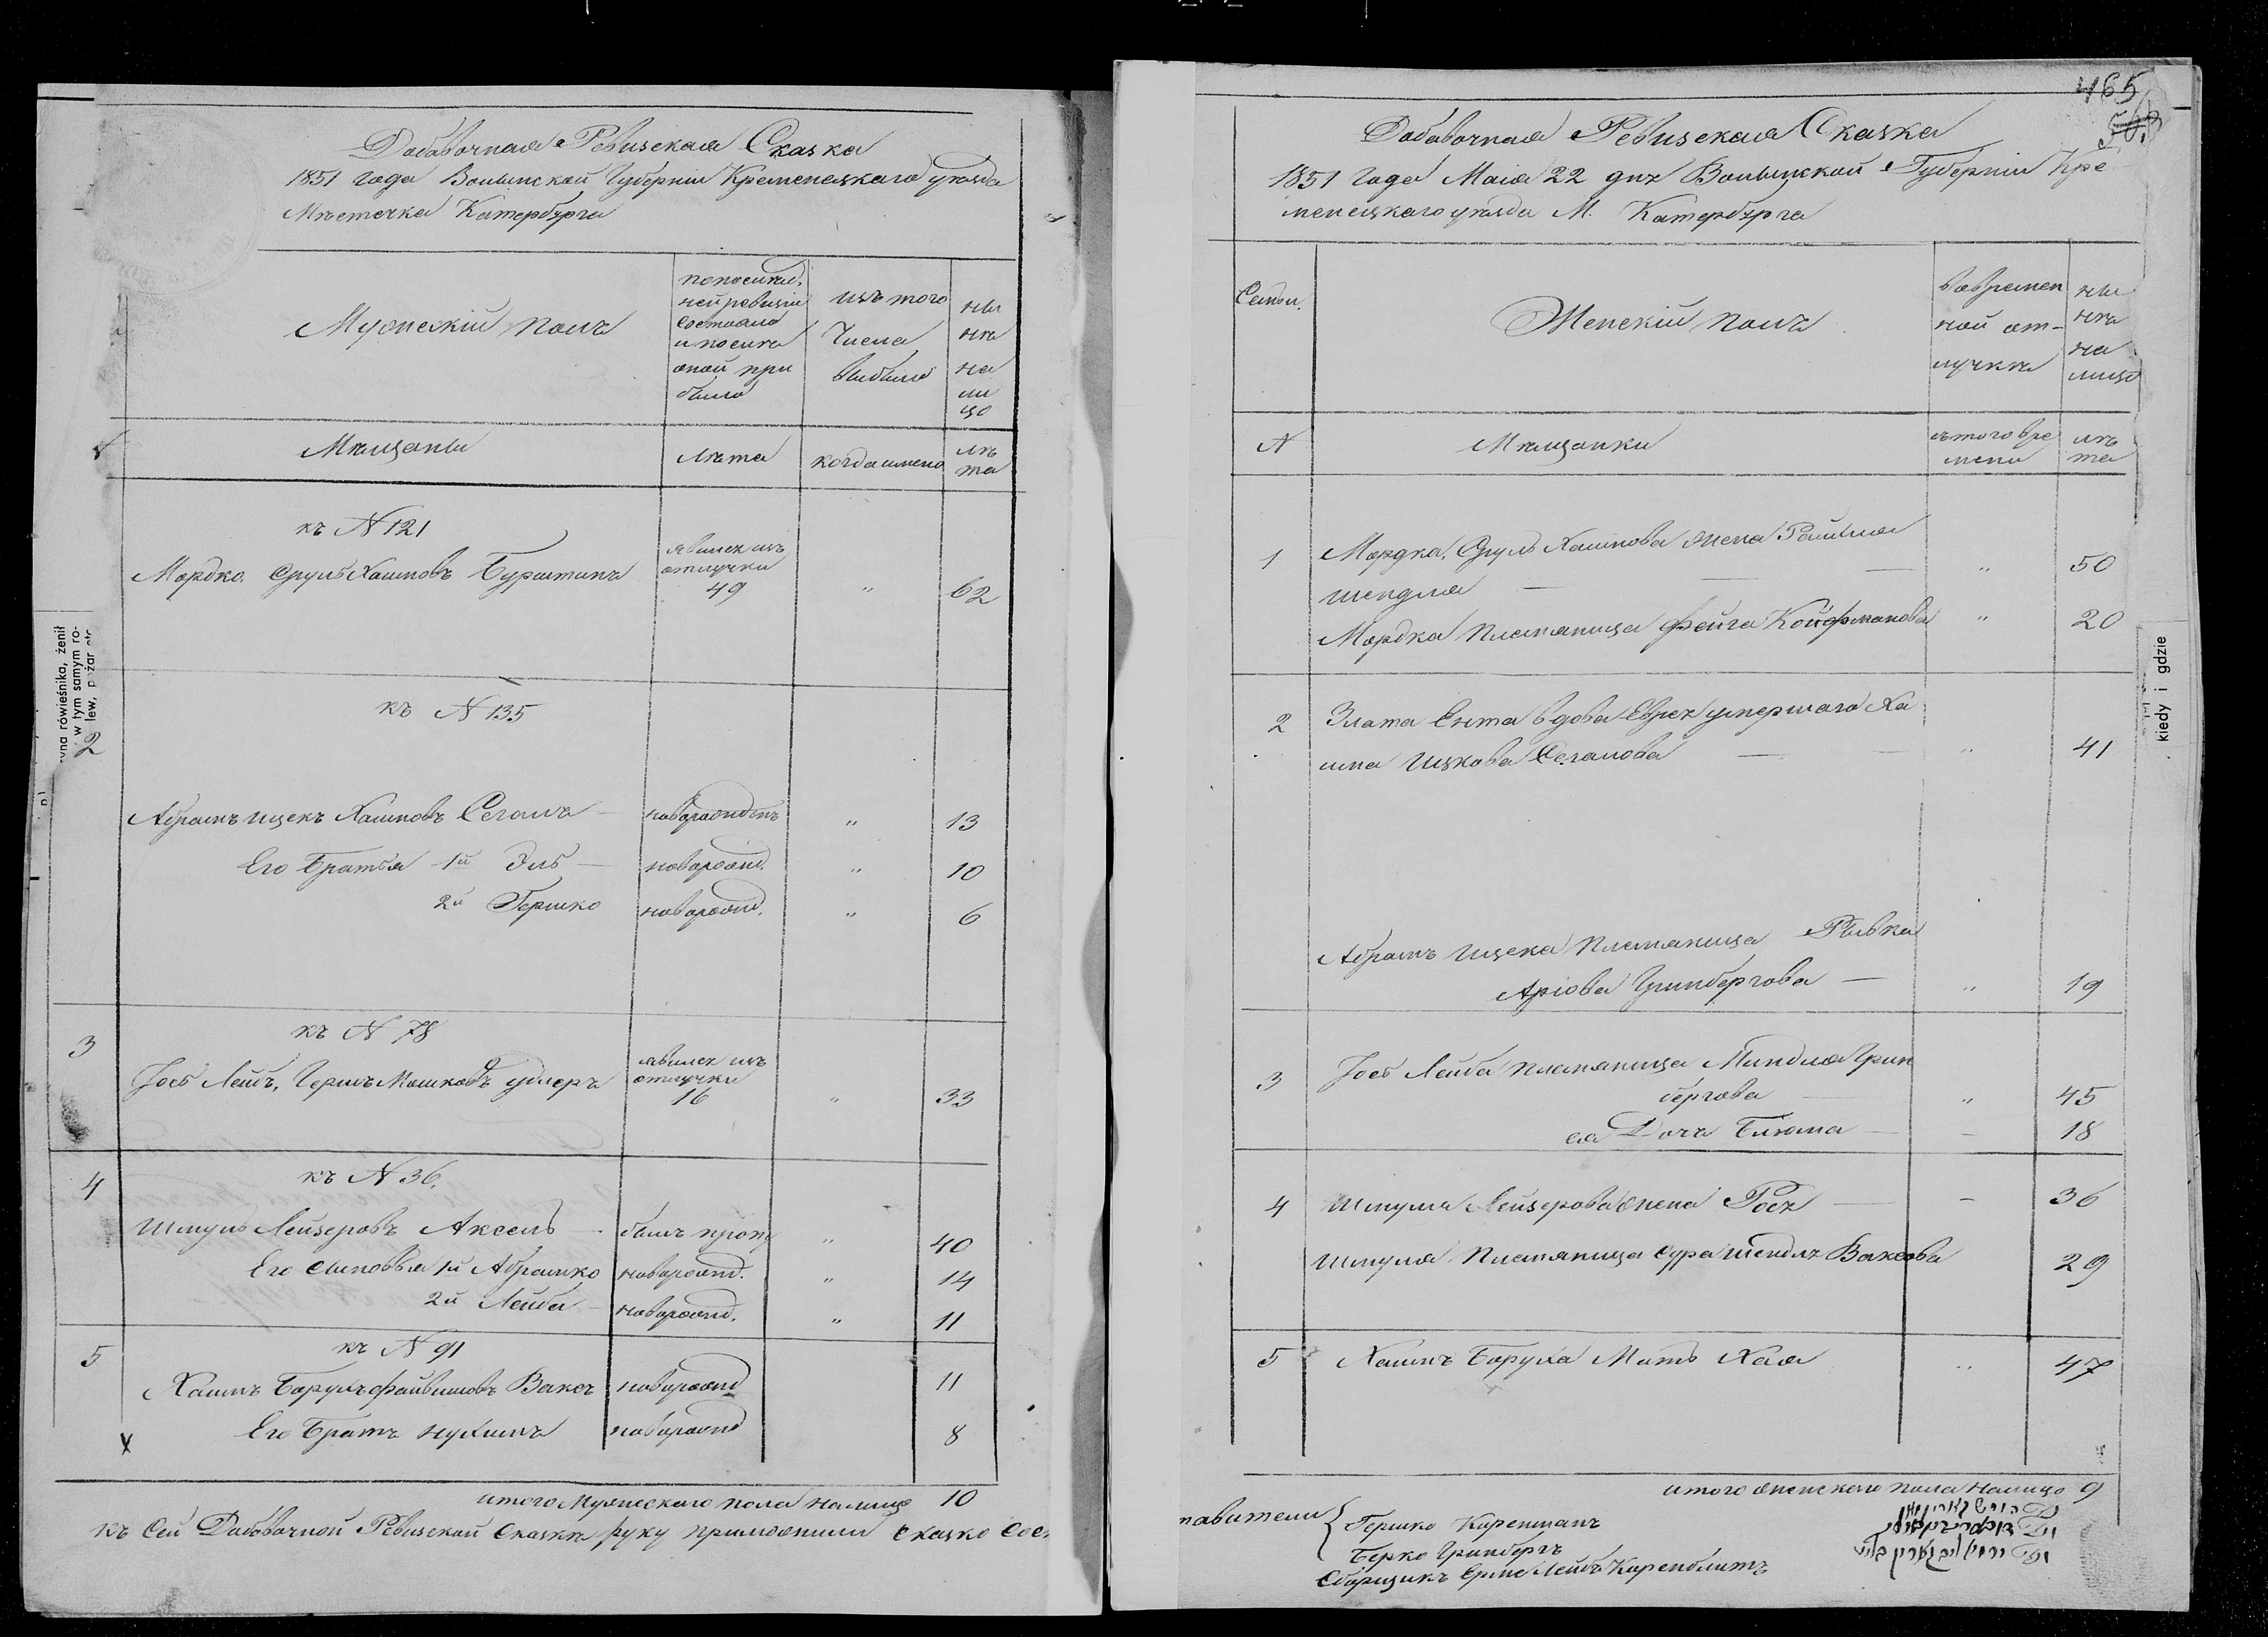 Добавочная Ревизская Сказка
1851 года Волынской Губерніи Кременецкаго уѣзда
Мѣстечка Катербурга
Мужескій полъ
по послѣд-
ней ревизіи
состояло
и послѣ
оной при
было
изъ того
числа
выбыло
ны
нѣ
на
ли
цо
Мѣщаны
Лѣта
когда имено
лѣ
та
къ N 121
Мордко Сруль Хаимовъ Бурштинъ
явился изъ
отлучки
49
"
62
къ N 135
Абрамъ Ицекъ Хаимовъ Сегалъ
новорожденъ
"
13
Его Братья 1й Эль
новорожд.
"
10
2й Гершко
новорожд.
"
6
3
къ N 78
Іось Лейбъ, Гершъ Мошковъ Удлеръ
явился изъ
отлучки
16
"
33
4
къ N 36.
Шмуль Лейзеровъ Аксель
былъ проп
"
40
Его сыновья 1й Абрамко
новорожд.
"
14
2й Лейба
новорожд.
"
11
5
къ N 91
Хаимъ Борухъ Файвишовъ Ваксъ
новорожд
11
Его Братъ Нухимъ
новорожд
8
итого Мужескаго пола налицо 10
къ Сей Добовочной Ревизской Сказки руку приложили Сказко Сос
465
Добавочная Ревизская Сказка
1851 года Маія 22 дня Волынской Губерніи Кре
менецкаго уѣзда М. Катербурга
Семьи.
Женскій полъ
вовремен
ной от-
лучкѣ
ны
нѣ
на
лицо
N
Мѣщанки
съ того вре
мени
лѣ
та
1
Мордка, Сруль Хаимова жена Райзля
Шендля
"
50
Мордка племяница Фейга Койфманова
"
20
2
Злата Ента вдова Еврея умершаго Ха
има Ицкова Сегалова
"
41
Абрамъ Ицека племяница Рывка
Аріова Гринбергова
"
19
3
Іось Лейба племяница Миндля Грин
бергова
"
45
еа Дочь Блюма
18
4
Шмуля Лейзерова жена Рося
36
Шмуля племяница Сура Шендля Ваксова
29
5
Хаимъ Боруха Мать Хая
"
47
итого женскаго пола налицо 9
тавители
Гершко Каренманъ
Берко Гринбергъ
Сборщикъ Лейбъ Каренблитъ
kiedy i gdzie
w tym samym ro-